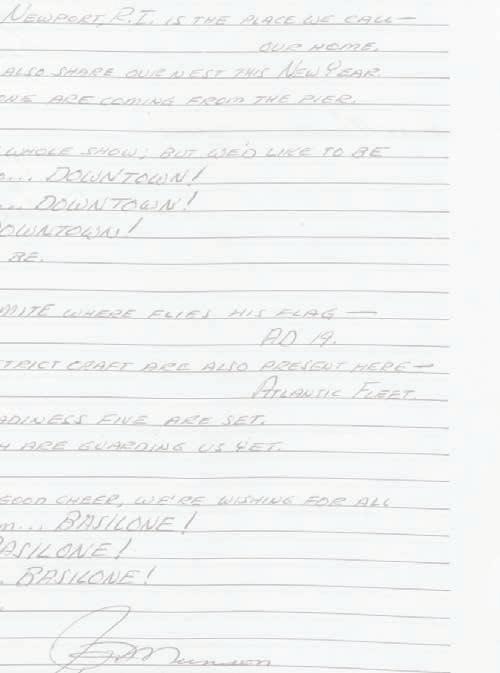 NEWPORT, R.I. IS THE PLACE WE CALL—
OUR HOME.
ALSO SHARE OUR NEST THIS NEW YEAR.
ONE ARE COMING FROM THE PIER.
WHOLE SHOW; BUT WE'D LIKE TO BE
... DOWNTOWN!
... DOWNTOWN!
DOWNTOWN!
BE.
MITE WHERE FLIES HIS FLAG —
AD 19.
TRICT CRAFT ARE ALSO PRESENT HERE—
ATLANTIC FLEET.
ADINESS FIVE ARE SET.
H ARE GUARDING US YET.
GOOD CHEER, WE'RE WISHING FOR ALL
M... BASILONE!
BASILONE!
. BASILONE!